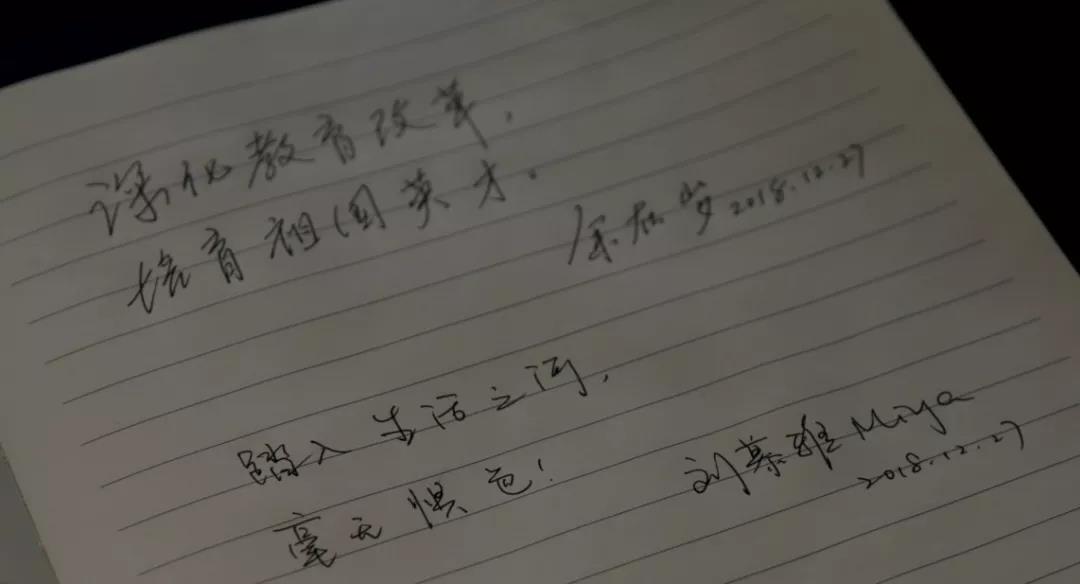 深化教育改革,
培育祖国英才。
2018.12.27
踏入生活之河,
毫无惧色!
刘慕雅Miya
2018.12.27